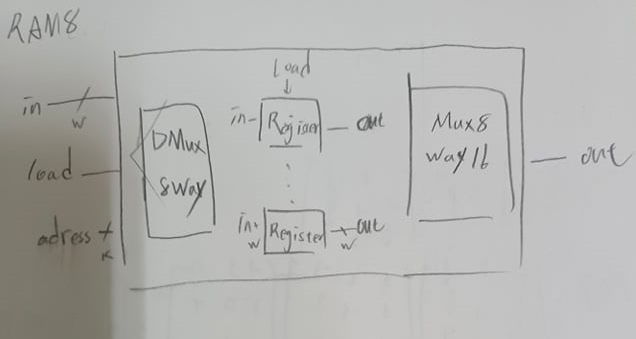 RAM8
in
W
load
adress
K
DMux
8Way
load
in
Regiser
out
in
W
Register
W
out
Mux8
Way16
out